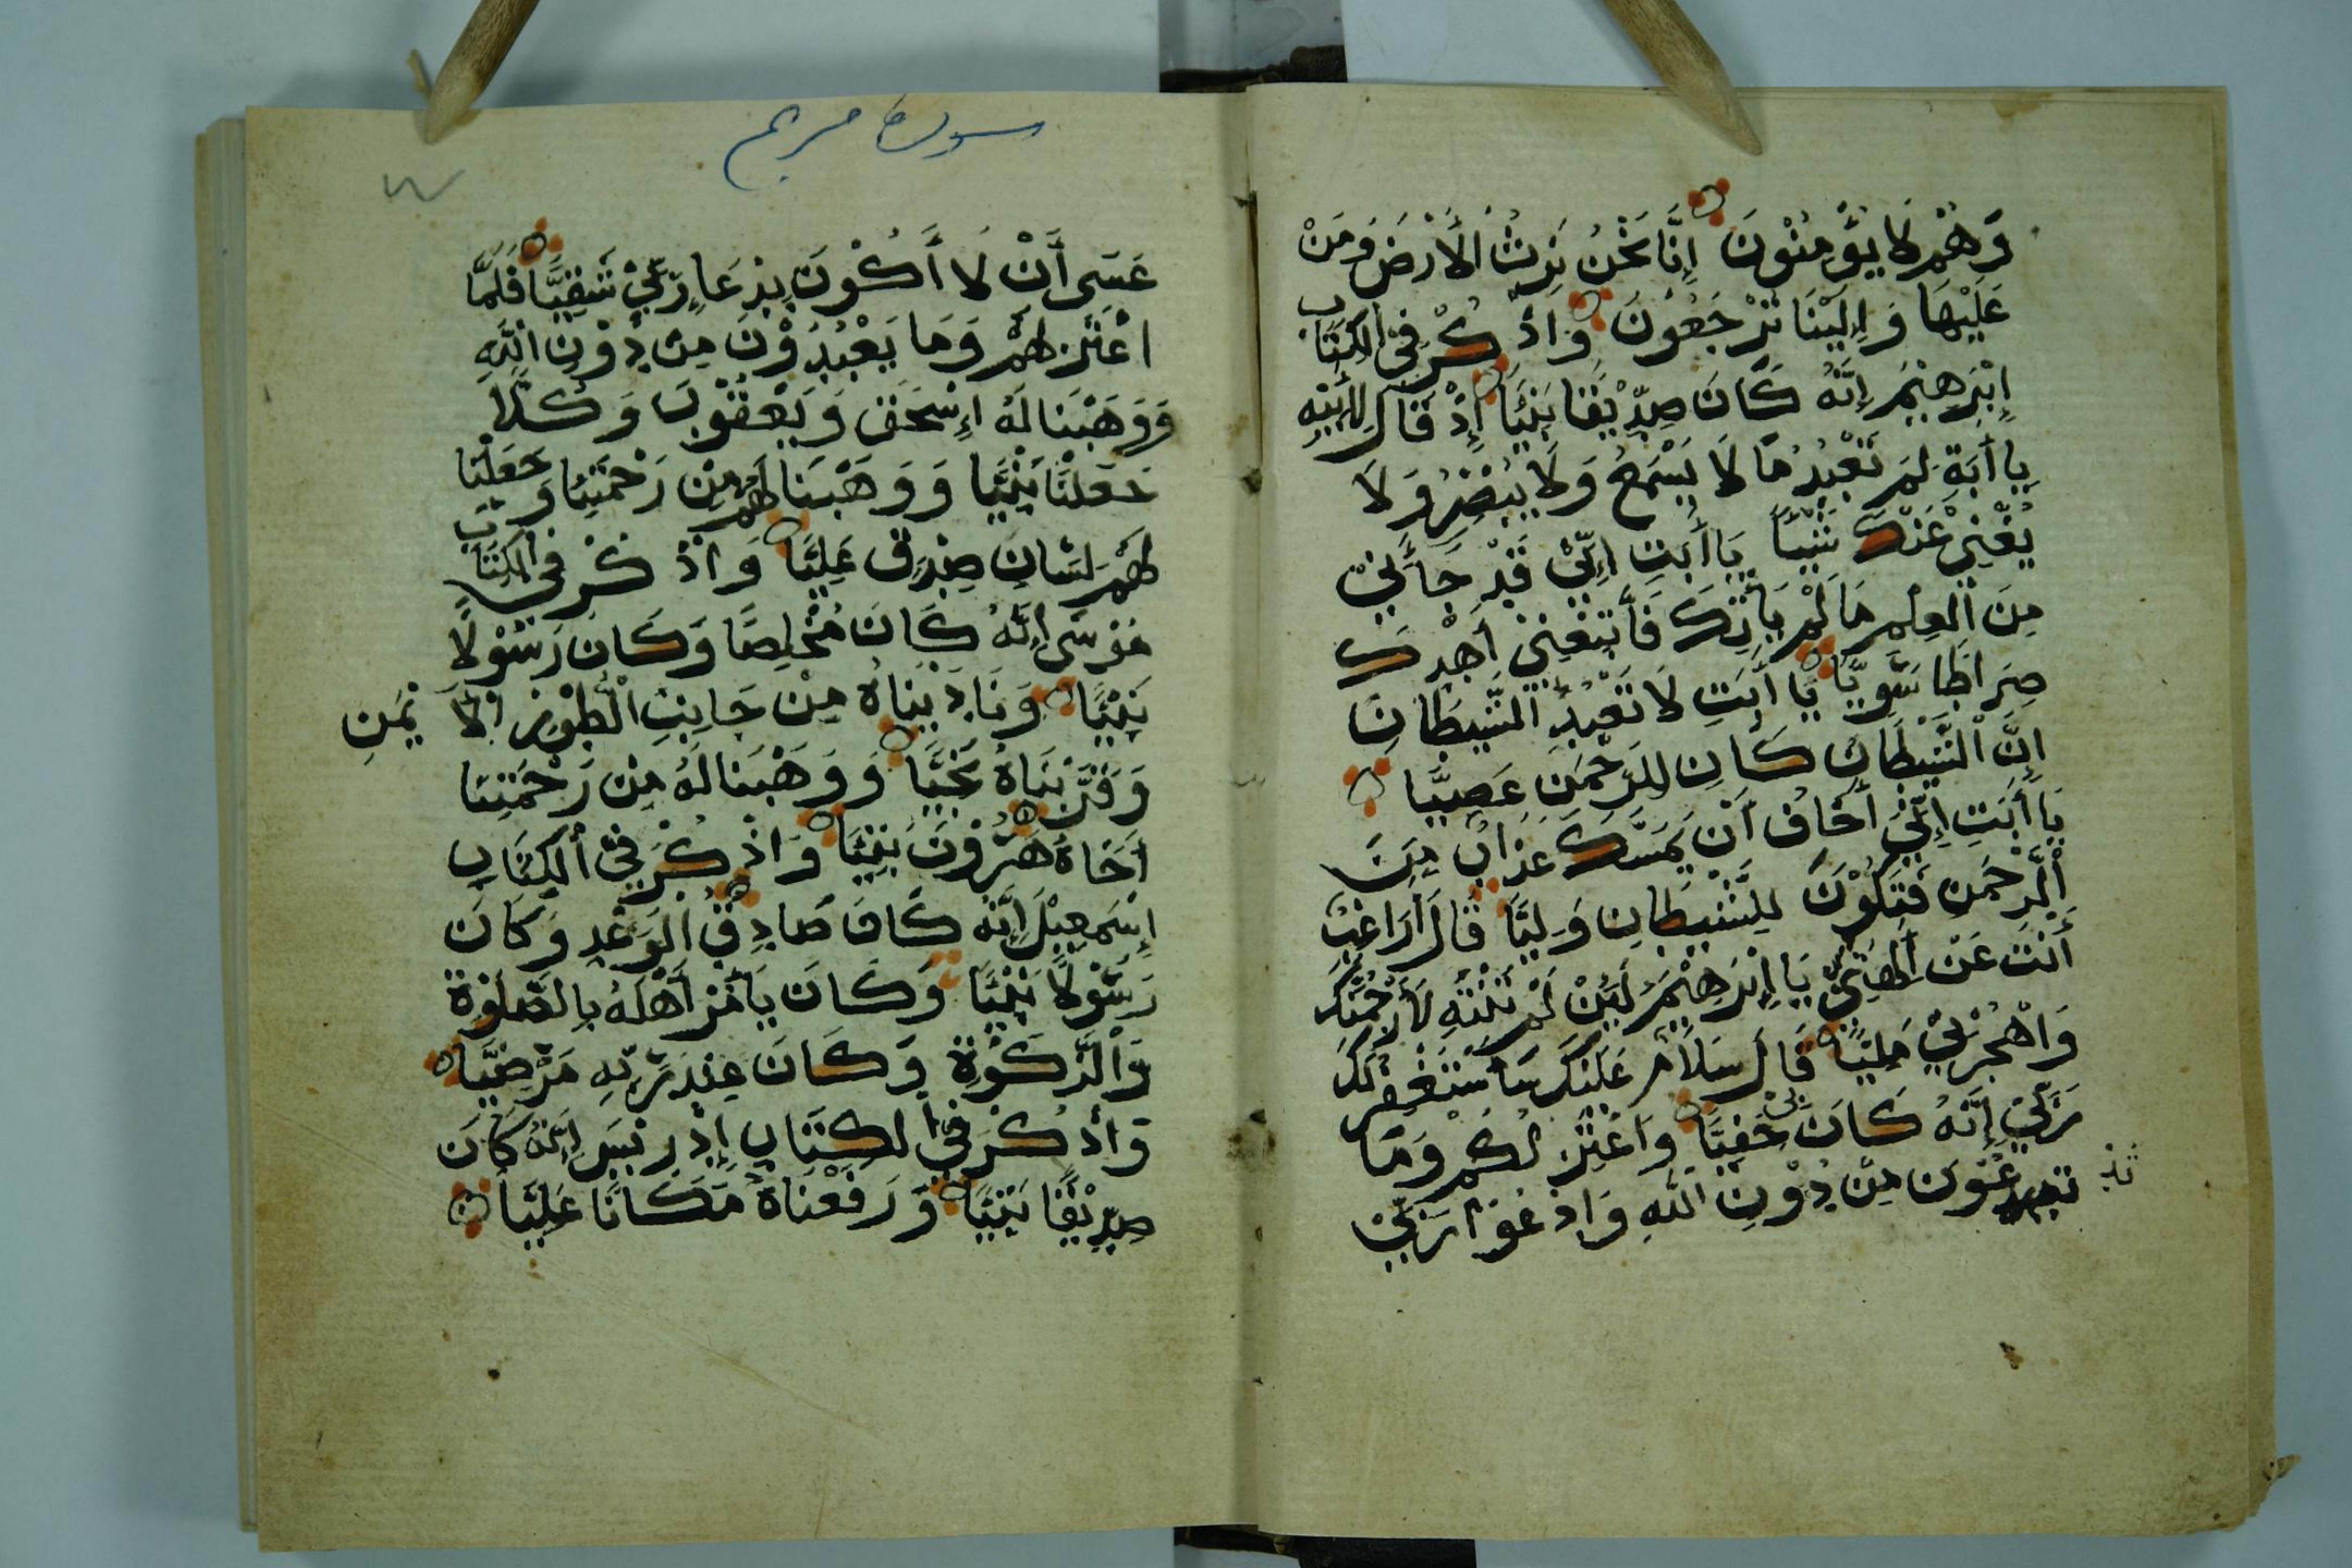 وَهُمْ لَا يُؤْمِنُوْنَ إِنَّا نَحْنُ نَرِثُ الْأَرْضَ وَمَنْ
عَلَيْهَا وَإِلَيْنَا تُرْجَعُونَ وَاذْكُرْ فِي الْكِتَابِ
إِبْرَهِيْمَ إِنَّهُ كَانَ صِدِّيْقًا نَبِيًّا إِذْ قَالَ لِأَبِيْهِ
يَا أَبَةِ لِمَ تَعْبُدُ مَا لَا يَسْمَعُ وَلَا يُبْصِرُ وَلَا
يُغْنِيْ عَنْكَ شَيْئًا يَا أَبَتِ إِنِّيْ قَدْ جَآءَنِيْ
مِنَ الْعِلْمِ مَا لَمْ يَأْتِكَ فَأتَّبِعْنِيْ أَهْدِكَ
صِرَاطًا سَوِيًّا يَا أَبَتِ لَا تَعْبُدِ الشَّيْطَانَ
إِنَّ الشَّيْطَانَ كَانَ لِلرَّحْمَنِ عَصِيًّا
يَا أَبَتِ إِنِّيْ أَخَافُ أَنْ يَمَسَّكَ عَذَابٌ مِنَ
الرَّحْمَنِ فَتَكُوْنَ لِلشَّيْطَانِ وَلِيًّا قَالَ أَرَاغِبٌ
أَنْتَ عَنْ أَلِهَتِيْ يَا إِبْرَهِيْمُ لَئِنْ لَمْ تَنْتَهِ لَأَرْجُمَنَّكَ
وَاهْجُرْنِيْ مَلِيًّا قَالَ سَلَامٌ عَلَيْكَ سَأَسْتَغْفِرُ لَكَ
رَبِّيْ إِنَّهُ كَانَ بِيْ حَفِيًّا وَاعْتَزِلُكُمْ وَمَا
تَدْعُوْنَ مِنْ دُوْنِ اللَّهِ وَادْعُوْا رَبِّيْ
سورة مريم
عَسَى أَنْ لَا أَكُوْنَ بِدُعَاءِ رَبِّيْ شَقِيًّا فَلَمَّا
اعْتَزَلَهُمْ وَمَا يَعْبُدُوْنَ مِنْ دُوْنِ اللَّهِ
وَوَهَبْنَا لَهُ إِسْحَقَ وَيَعْقُوْبَ وَكُلًّا
جَعَلْنَا نَبِيًّا وَوَهَبْنَا لَهُمْ مِنْ رَحْمَتِنَا وَجَعَلْنَا
لَهُمْ لِسَانَ صِدْقٍ عَلِيًّا وَاذْكُرْ فِي الْكِتَابِ
مُوْسَى إِنَّهُ كَانَ مُخْلِصًا وَكَانَ رَسُوْلًا
نَبِيًّا وَنَادَيْنَاهُ مِنْ جَانِبِ الْطُوْرِ الْأَيْمَنِ
وَقَرَّبْنَاهُ نَجِيًّا وَوَهَبْنَا لَهُ مِنْ رَحْمَتِنَا
أَخَاهُ هَرُوْنَ نَبِيًّا وَاذْكُرْ فِي الْكِتَابِ
إِسْمَعِيْلَ إِنَّهُ كَانَ صَادِقَ الْوَعْدِ وَكَانَ
رَسُوْلًا نَبِيًّا وَكَانَ يَأْمُرُ أَهْلَهُ بِالصَّلَوةِ
وَالزَّكَوةِ وَكَانَ عِنْدَ رَبِّهِ مَرْضِيًّا
وَاذْكُرْ فِي الْكِتَابِ إِدْرِيْسَ إِنَّهُ كَانَ
صِدِّيْقًا نَبِيًّا وَرَفَعْنَاهُ مَكَانًا عَلِيًّا